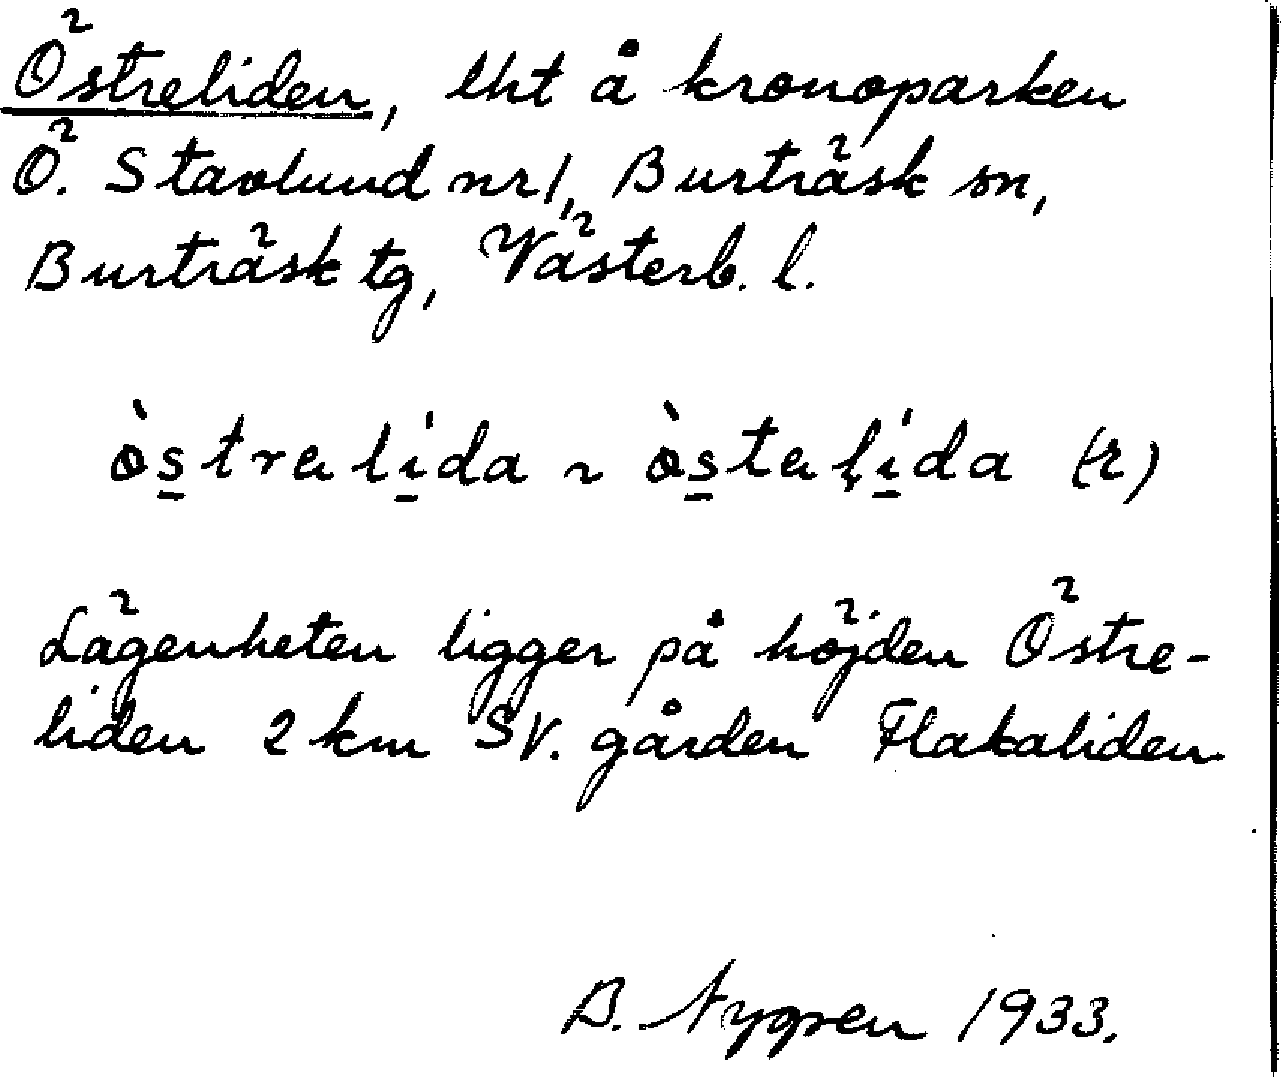 Östreliden, lht å kronoparken
Ö. Stavlund nr 1, Burträsk sn,
Burträsk tg, Västerb. l.
òstralída ~ òstalída (r)
Lägenheten ligger på höjden Östre-
liden 2 km SV. gården Flakaliden
B. Nygren 1933.